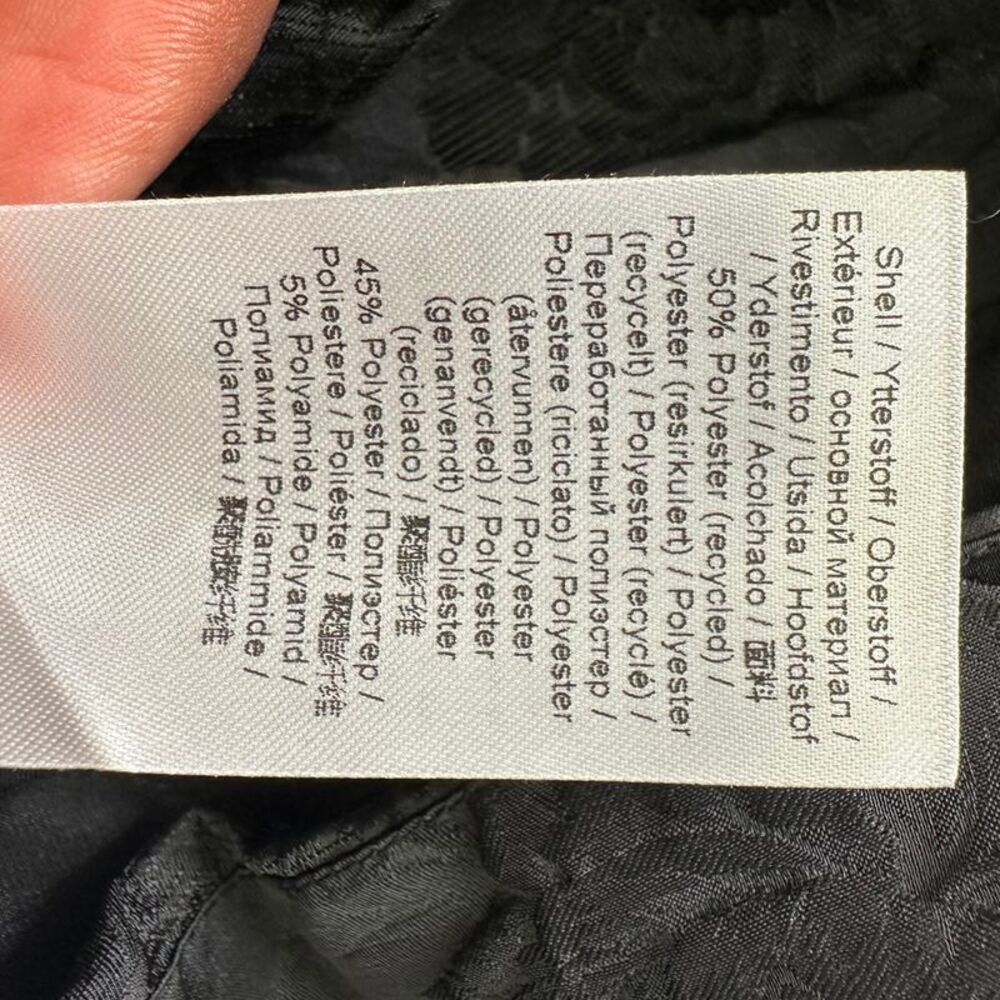 Shell / Ytterstoff / Oberstoff /
Extérieur / основной материал /
Rivestimento / Utsida / Hoofdstof
/ Yderstof / Acolchado / 面料
50% Polyester (recycled) /
Polyester (resirkulert) / Polyester
(recycelt) / Polyester (recyclé) /
Переработанный полиэстер /
Poliestere (riciclato) / Polyester
(återvunnen) / Polyester
(gerecycled) / Polyester
(genanvendt) / Poliéster
(reciclado) / 聚酯纤维
45% Polyester / Полиэстер /
Poliestere / Poliéster / 聚酯纤维
5% Polyamide / Polyamid /
Полиамид / Poliammide /
Poliamida / 聚酰胺纤维